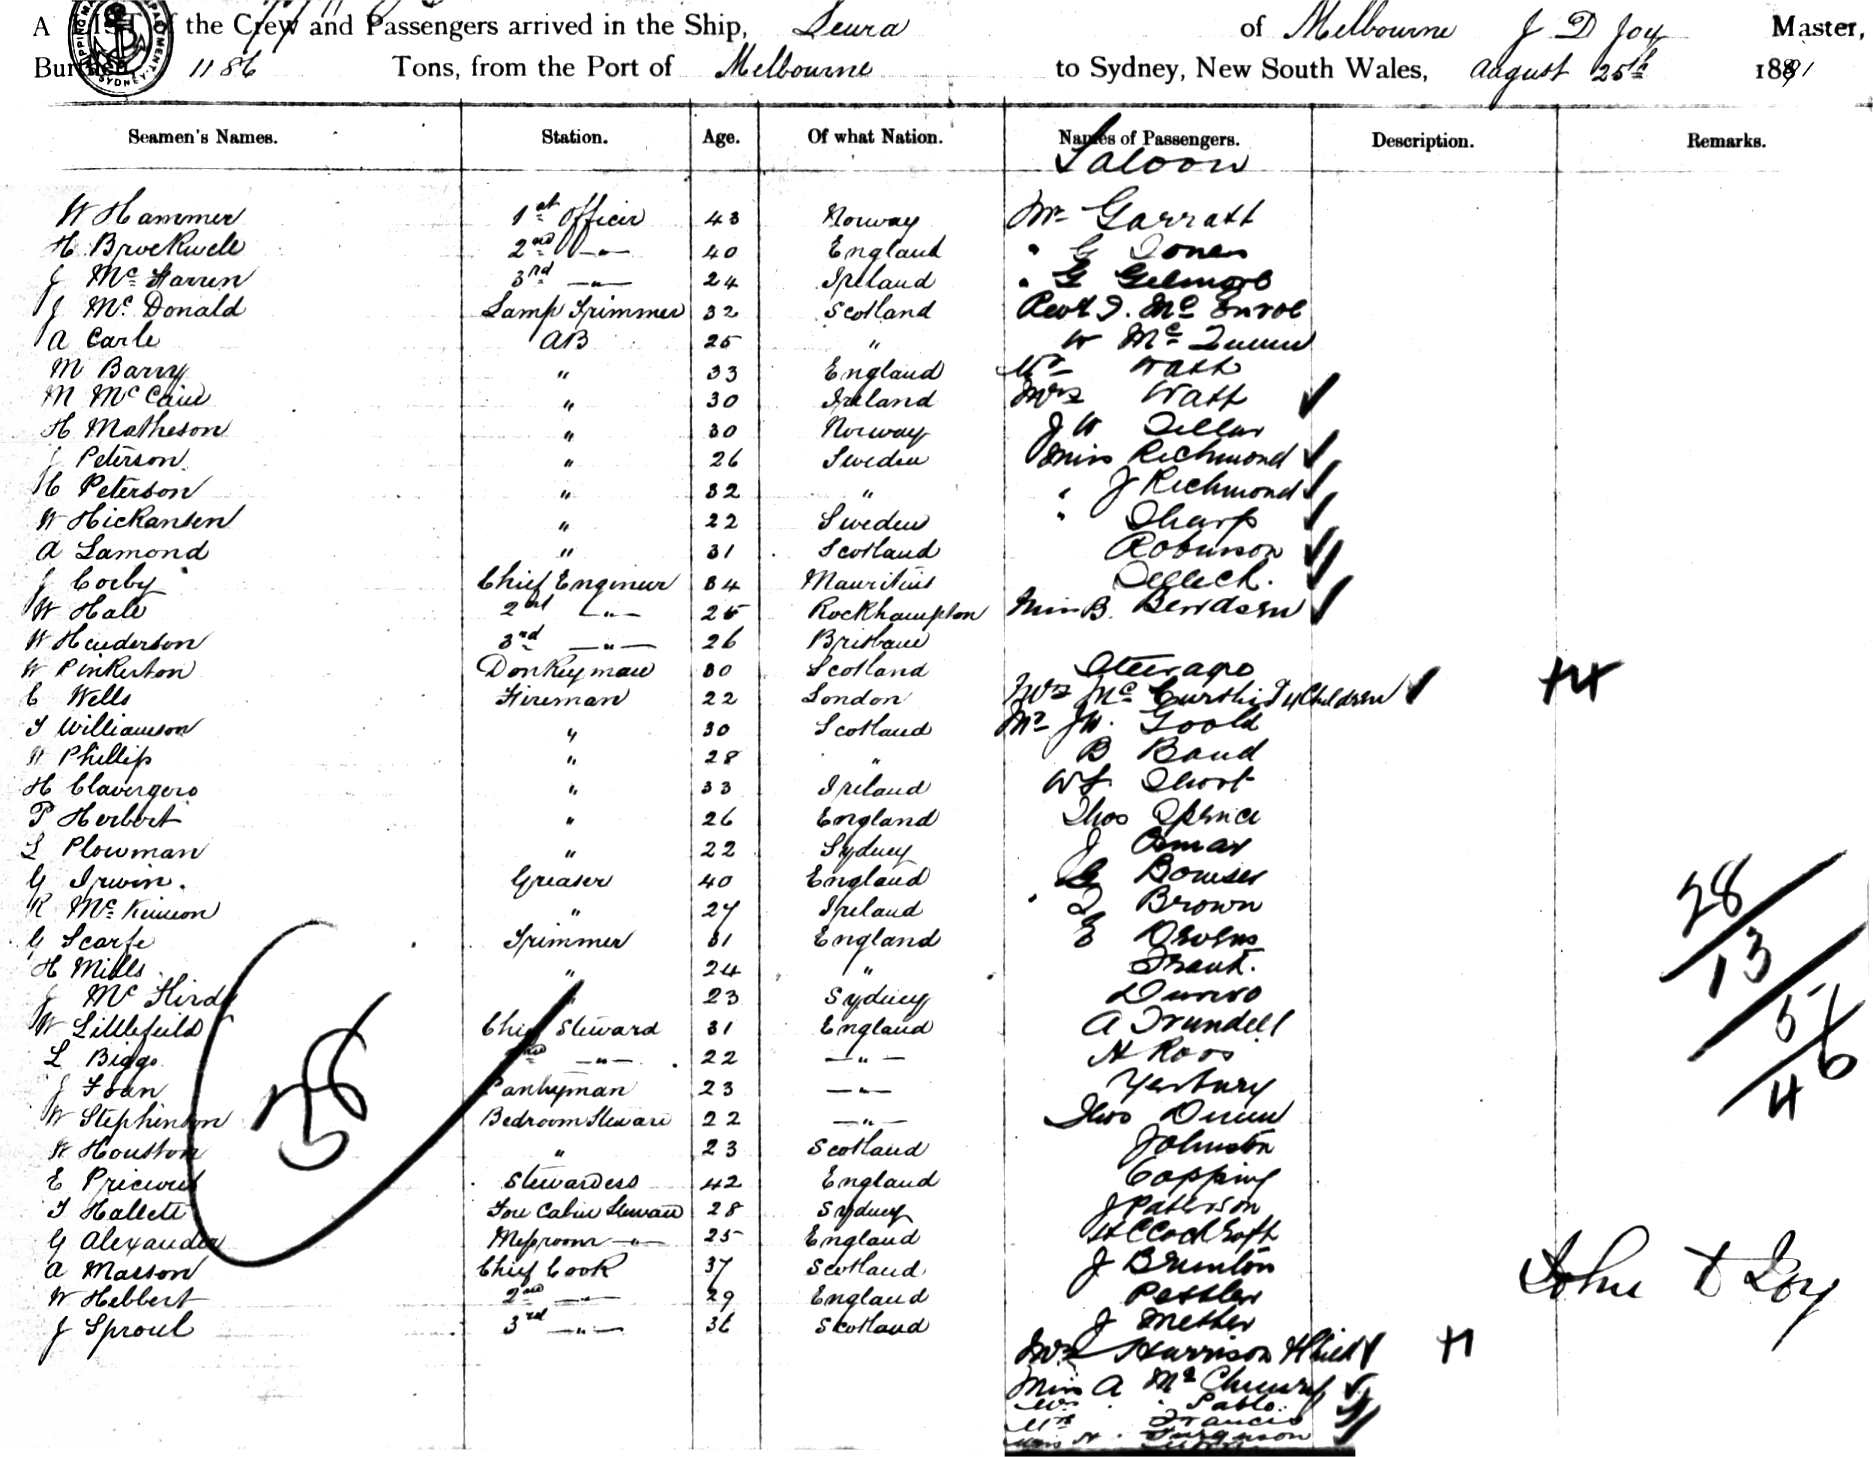 A LIST of the Crew and Passengers arrived in the Ship, Leura of Melbourne J D Joy Master,
Burthen 1186 Tons, from the Port of Melbourne to Sydney, New South Wales, August 25th 1891
Seamen's Names. Station. Age. Of what Nation. Names of Passengers. Description. Remarks.
Saloon
W Hammer 1st Officer 43 Norway Mr Garratt
H Brockwell 2nd —"— 40 England " G Jones
J Mc Farren 3rd —"— 24 Ireland " G Gilmore
J Mc Donald Lamp Trimmer 32 Scotland Revd J. Mc Enroe
A Carle AB 25 " W Mc
M Barry " 33 England Mr Watt
M McCaw " 30 Ireland Mrs Watt
H Matheson " 30 Norway J W
J Peterson " 26 Sweden Miss Richmond
H Peterson " 32 " " J Richmond
W Hickansen " 22 Sweden " Sharp
A Lamond " 31 Scotland Robinson
J Corby Chief Engineer 34 Mauritius Selleck.
W Hale 2nd —"— 25 Rockhampton Miss B. Berndsen
W Henderson 3rd —"— 26 Brisbane
W Pinkerton Donkeyman 30 Scotland Steerage
E Wells Fireman 22 London Mrs Mc & 4 Children +4
T Williamson " 30 Scotland Mr Jn. Goold
W Phillip " 28 " B Band
H Clavergero " 33 Ireland W S. Short
P Herbert " 26 England Thos Spence
L Plowman " 22 Sydney J
G Irwin. Greaser 40 England G Bowser
R Mc Kinnon " 27 Ireland " Brown
G Scarfe Trimmer 31 England E
H Mills " 24 "
J Mc Hirdy " 23 Sydney
W Littlefield Chief Steward 31 England A Trundell
L Biggs 2nd —"— 22 —"— H Roos
J Foan Pantryman 23 —"— Yerbury
W Stephinson Bedroom Steward 22 —"— Thos Dunn
W Houston " 23 Scotland Johnston
E Stewardess 42 England Copping
T Hallett Fore Cabin Steward 28 Sydney J Patterson
G Alexander Messroom —"— 25 England H C Cockcroft
A Masson Chief Cook 37 Scotland J Brunton
W Hebbert 2nd —"— 29 England
J Sproul 3rd —"— 36 Scotland J Mether
Mrs Harrison & Child +1
Miss A Mc
Pablo
Francis
Ferguson
38
28
13
5
46
John D Joy